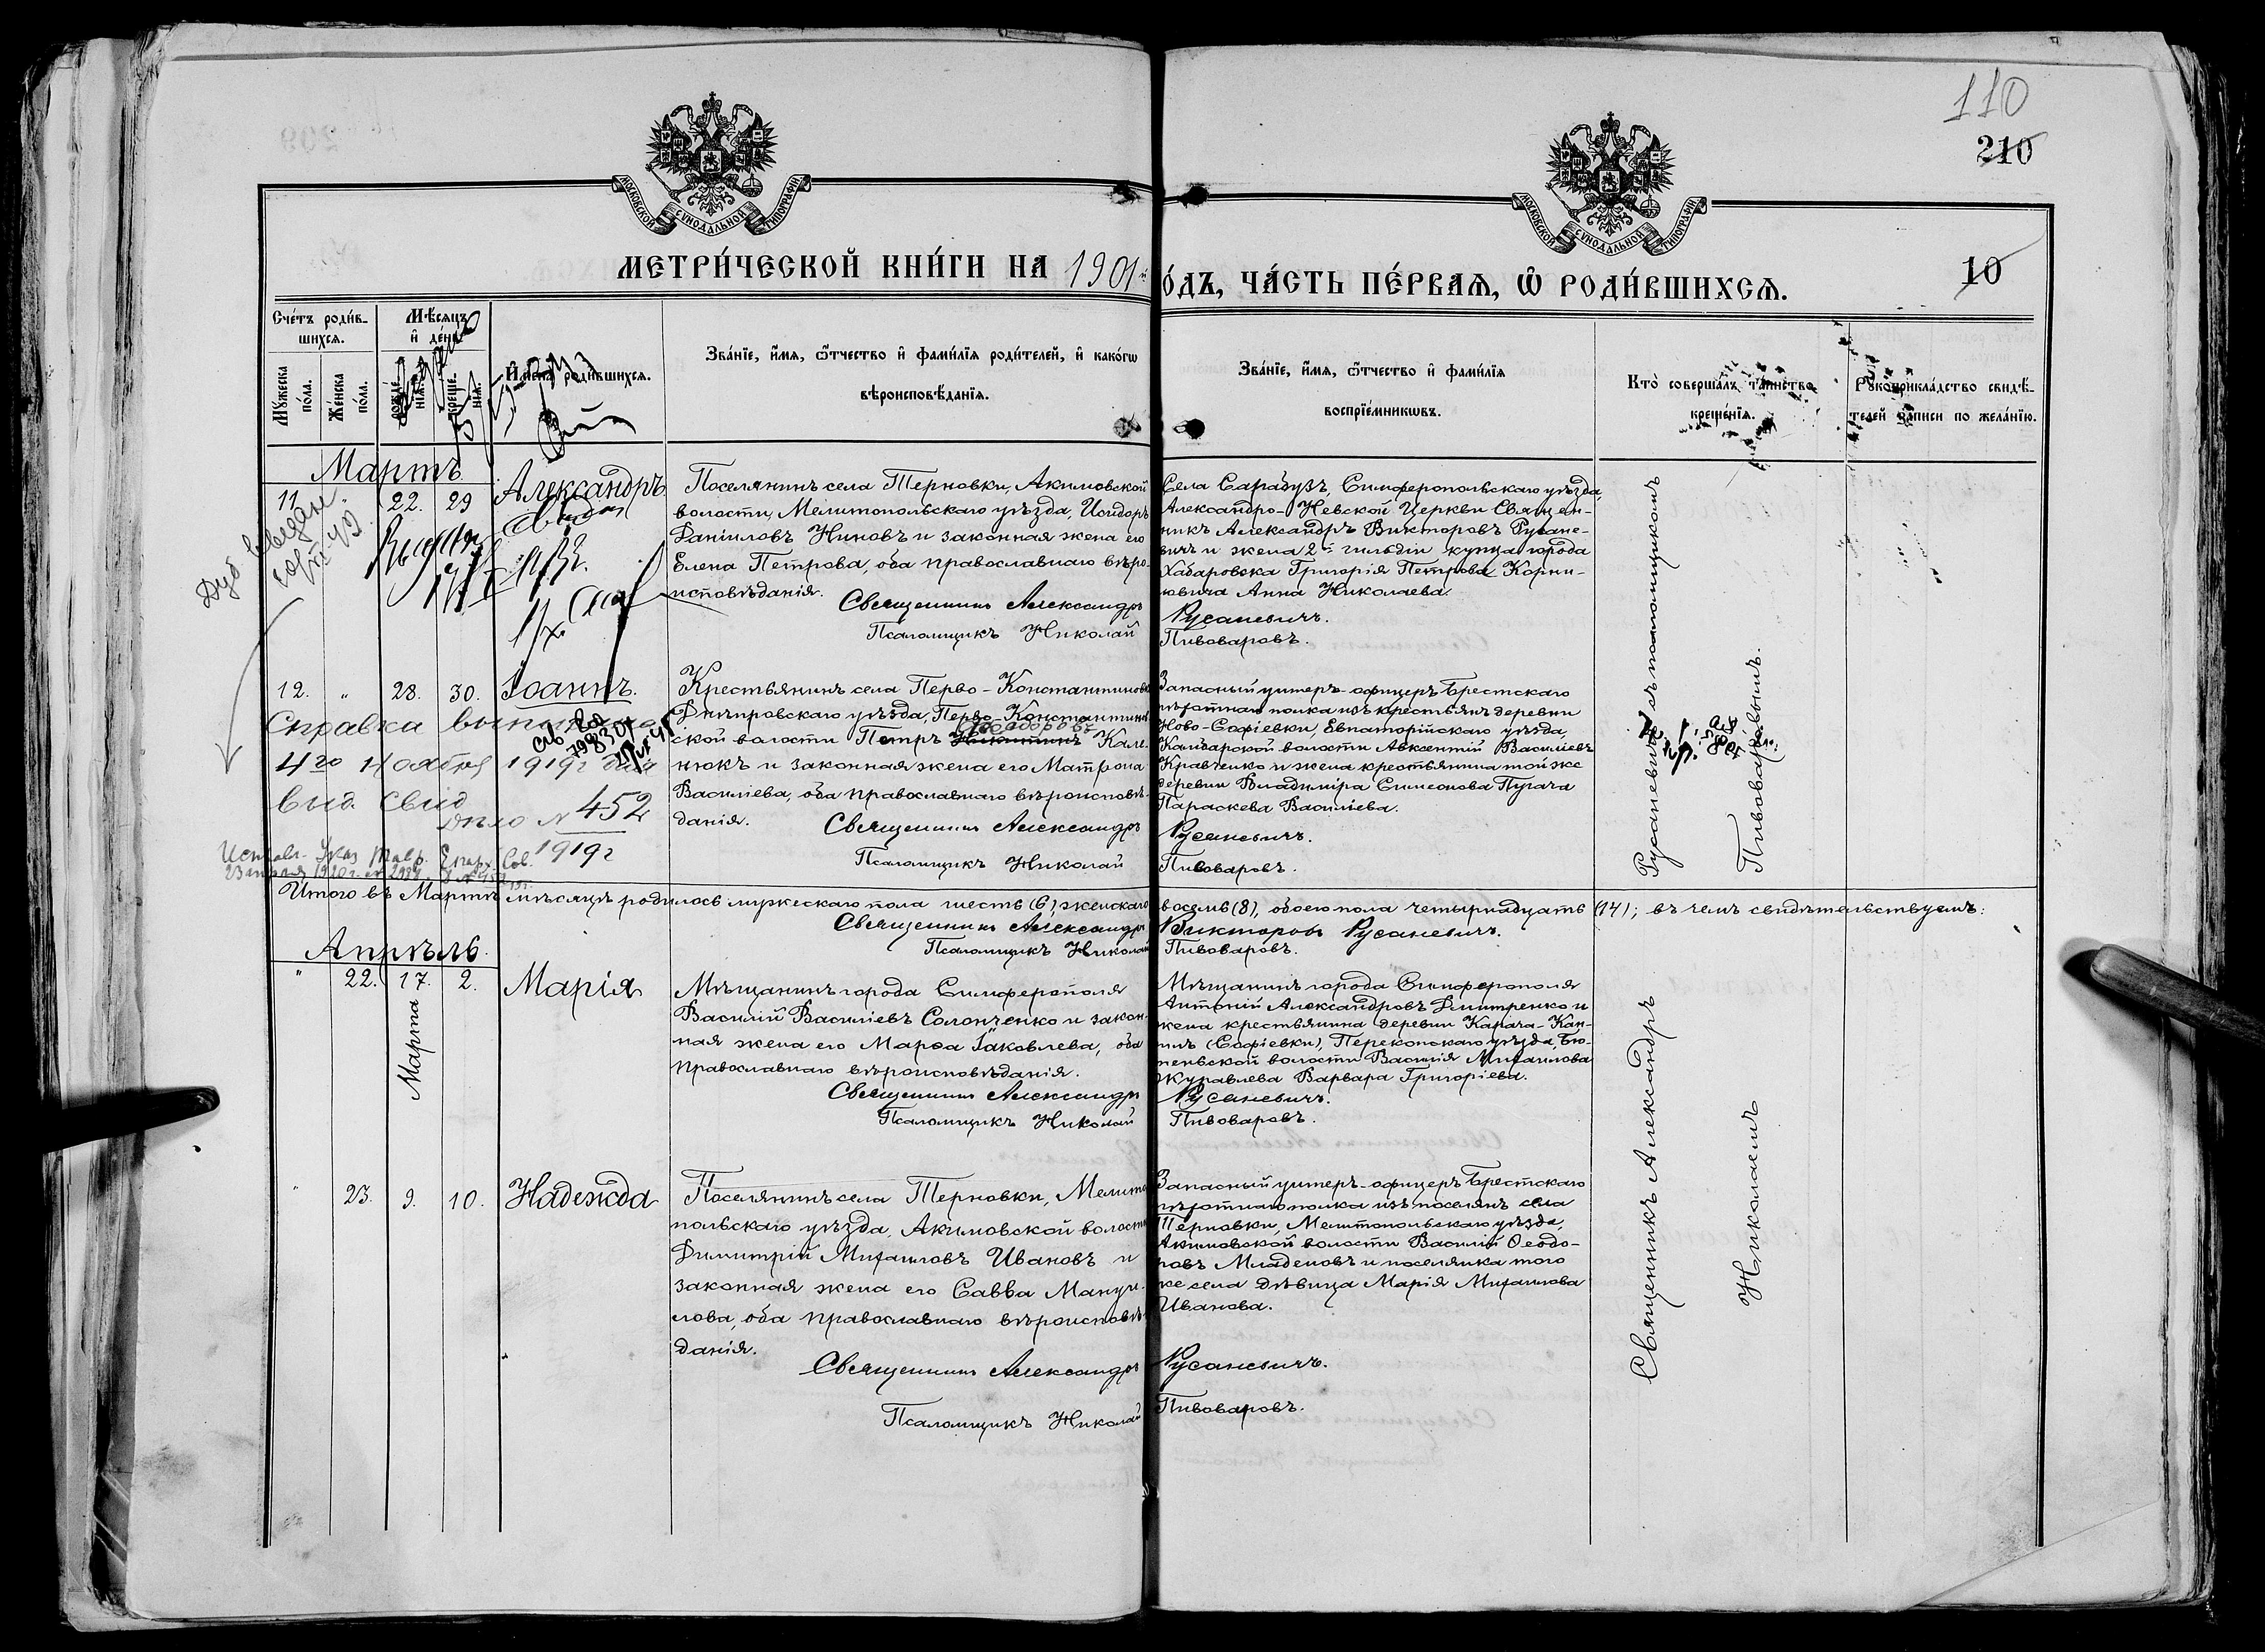 110
210
МОСКОВСКОЙ СУНОДАЛЬНОЙ ТИПОГРАФІИ
МОСКОВСКОЙ СУНОДАЛЬНОЙ ТИПОГРАФІИ
МЕТРИ́ЧЕСКОЙ КНИ́ГИ НА 1901й
О́ДЪ, ЧА́СТЬ ПЕ́РВАѦ, Ѿ РОДИ́ВШИХСѦ.
10
Сче́тъ роди́в-
шихсѧ.
Мꙋ́жеска по́ла.
Же́нска по́ла.
Мѣ́сѧцъ и де́нь
рожде́нїѧ.
креще́нїѧ.
И҆мена̀ роди́вшихсѧ.
Зва́нїе, и҆́мѧ, ѻ҆́тчество и҆ фами́лїѧ роди́телей, и҆ како́гѡ
вѣроисповѣ́данїѧ.
Зва́нїе, и҆́мѧ, ѻ҆́тчество и҆ фами́лїѧ
воспрїе́мникѡвъ.
Кто̀ соверша́лъ та́инство
креще́нїѧ.
Рꙋкоприкла́дство свидѣ́-
телей за́писи по жела́нїю.
Мартъ
11 " 22. 29 Александръ
Поселянинъ села Терновки, Акимовской
волости, Мелитопольскаго уѣзда, Исидоръ
Даніиловъ Ниновъ и законная жена его
Елена Петрова, оба православнаго вѣро-
исповѣданія.
Священникъ Александръ
Псаломщикъ Николай
Села Сарабузъ, Симферопольскаго уѣзда,
Александро-Невской Церкви Священ-
никъ Александръ Викторовъ Русане-
вичъ и жена 2й гильдіи купца города
Хабаровска Григорія Петрова Корни-
ювича Анна Николаева.
Русаневичъ.
Пивоваровъ.
12. " 28. 30. Іоаннъ.
Крестьянинъ села Перво-Константиновки
Днѣпровскаго уѣзда, Перво-Константинов-
Ѳеодоровъ
ской волости Петръ Никитинъ Кале-
нюкъ и законная жена его Матрона
Василіева, оба православнаго вѣроисповѣ-
данія.
Священникъ Александръ
Псаломщикъ Николай
Запасный унтеръ-офицеръ Брестскаго
пѣхотнаго полка изъ крестьянъ деревни
Ново-Софіевки, Евпаторійскаго уѣзда,
Камбарской волости Авксентій Василіевъ
Кравченко и жена крестьянина той же
деревни Владиміра Симеонова Пугача
Параскева Василіева.
Русаневичъ.
Пивоваровъ.
Справка выполнена
4го Ноября 1919г
выд. свид
дѣло № 452
1919г
Исправл. Указ Тавр. Епарх. Сов.
Итого въ Мартѣ мѣсяцѣ родилось мужескаго пола шесть (6), женскаго
восемь (8), обоего пола четырнадцать (14); въ чемъ свидѣтельствуемъ:
Священникъ Александръ
Викторовъ Русаневичъ.
Псаломщикъ Николай
Пивоваровъ.
Апрѣль.
" 22. 17. 2. Марія
Марта
Мѣщанинъ города Симферополя
Василій Василіевъ Солонченко и закон-
ная жена его Марѳа Іаковлева, оба
православнаго вѣроисповѣданія.
Священникъ Александръ
Псаломщикъ Николай
Мѣщанинъ города Симферополя
Антоній Александровъ Дмитренко и
жена крестьянина деревни Карача-Кан-
гилъ (Софіевки), Перекопскаго уѣзда, Бю-
теньской волости Василія Михаилова
Журавлева Варвара Григоріева.
Русаневичъ.
Пивоваровъ.
" 23. 9. 10. Надежда
Поселянинъ села Терновки, Мелито-
польскаго уѣзда, Акимовской волости
Димитрій Михаиловъ Ивановъ и
законная жена его Савва Мануи-
лова, оба православнаго вѣроисповѣ-
данія.
Священникъ Александръ
Псаломщикъ Николай
Запасный унтеръ-офицеръ Брестскаго
пѣхотнаго полка изъ поселянъ села
Терновки, Мелитопольскаго уѣзда,
Акимовской волости Василій Ѳеодо-
ровъ Младеновъ и поселянка того
же села дѣвица Марія Михаилова
Иванова.
Русаневичъ.
Пивоваровъ.
Священникъ Александръ Русаневичъ съ псаломщикомъ
Николаемъ Пивоваровымъ.